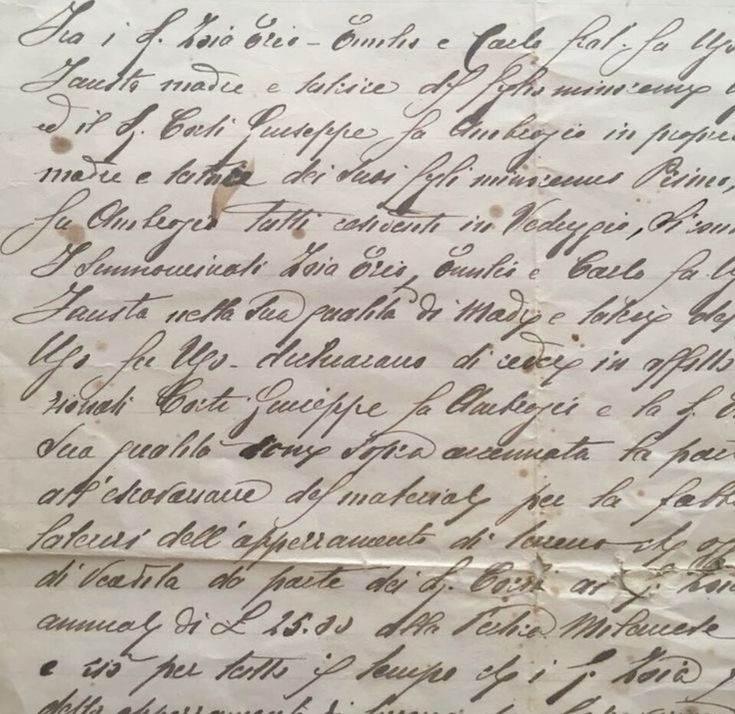 Tra i S. Zoia Erio - Emilio e Carlo frat. fu Ugo
Fausta madre e tutrice dei figli minorenni
ed il S. Corti Giuseppe fu Ambrogio in propri
madre e tutrice dei suoi figli minorenni Primo,
fu Ambrogio tutti residenti in Veduggio, si con
I summenzionati Zoia Erio, Emilio e Carlo fu U
Fausta nella sua qualità di Madre e tutrice de
Ugo fu Ugo - dichiarano di cedere in affitto
zionati Corti Giuseppe fu Ambrogio e la S.
sua qualità come sopra accennata la part
all'escavazione del materiale per la fabb
laterizi dell'appezzamento di terreno che og
di vendita da parte dei S. Corti ai S. Zoia
annuale di £ 25.00 alla Pertica Milanese
e ciò per tutto il tempo che i S. Zoia
dello appezzamento di terreno